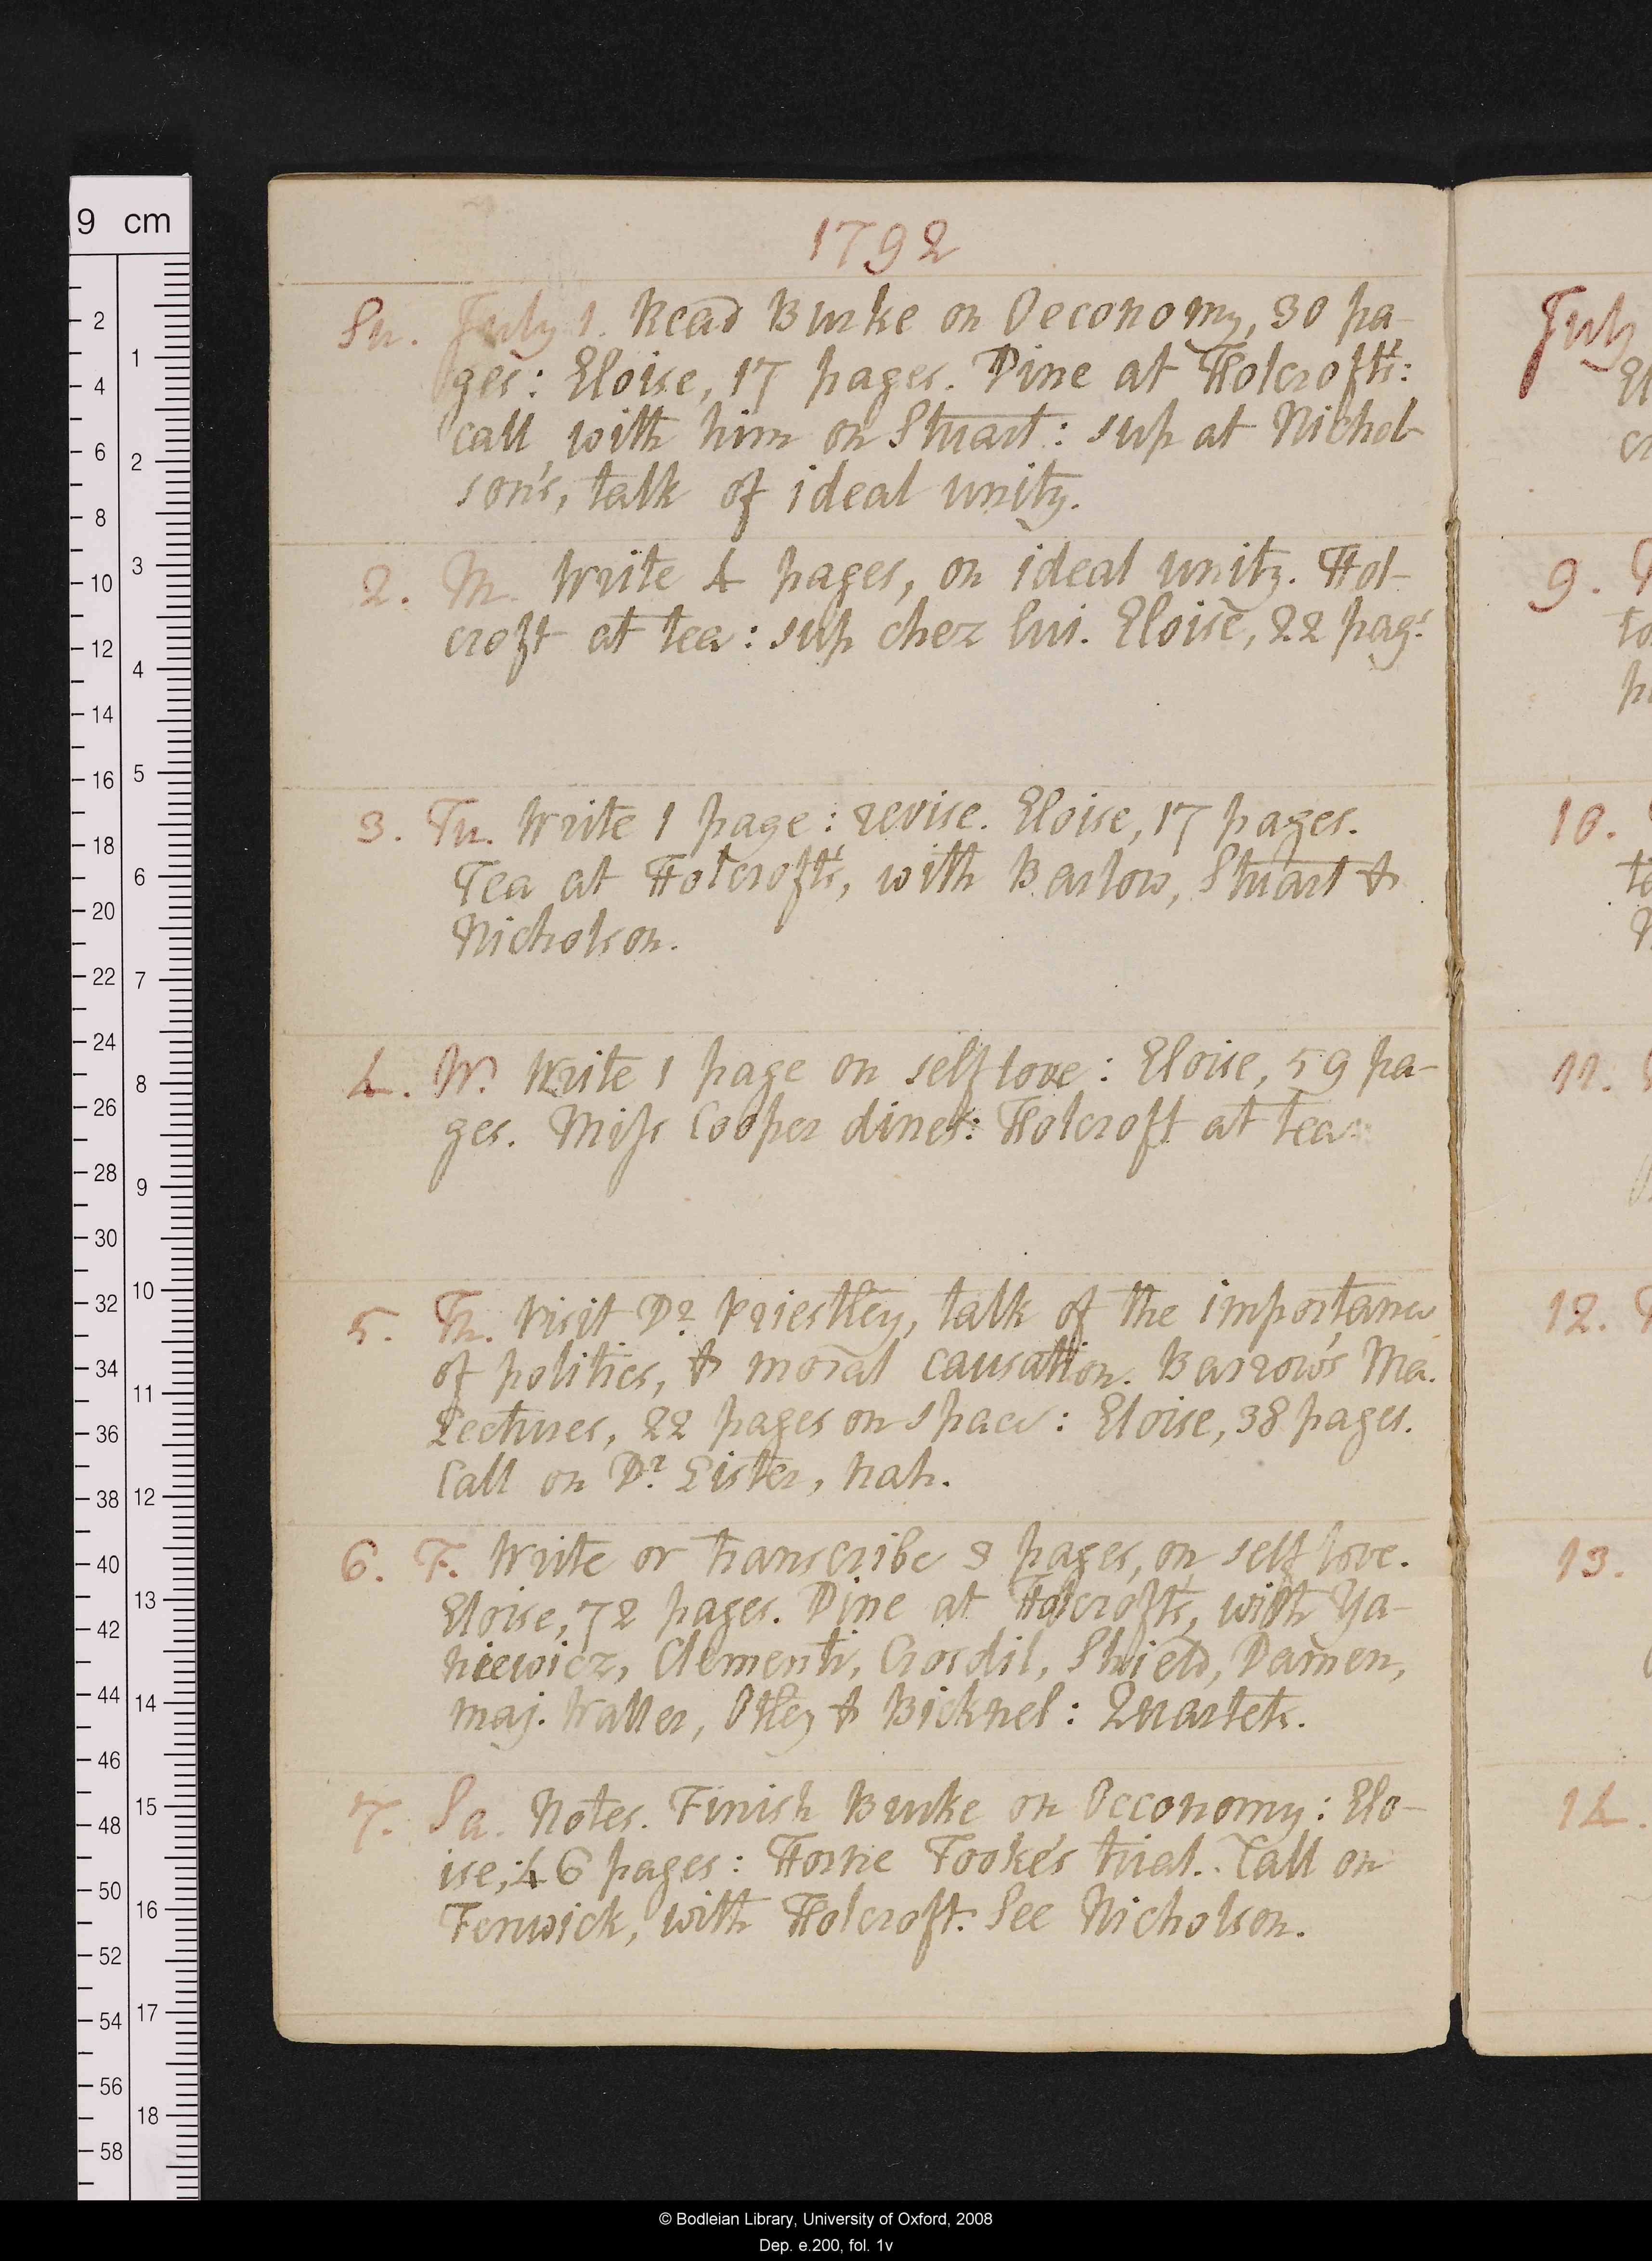 1792
Su. July 1. Read Burke on Oeconomy, 30 pa-
ges: Eloise, 17 pages. Dine at Holcroft's:
call with him on Stuart: sup at Nichol-
son's, talk of ideal unity.
2. M. Write 4 pages, on ideal unity. Hol-
croft at tea: sup chez lui. Eloise, 22 pag.s
3. Tu. Write 1 page: revise. Eloise, 17 pages.
Tea at Holcroft's, with Barlow, Stuart &
Nicholson.
4. W. Write 1 page on self love: Eloise, 59 pa-
ges. Miss Cooper dines: Holcroft at tea.
5. Th. Visit Dr. Priestley, talk of the importance
of politics, & moral causation. Barrow's Ma.
Lectures, 22 pages on space: Eloise, 38 pages.
Call on Dr. Lister, nah.
6. F. Write or transcribe 8 pages, on self love.
Eloise, 72 pages. Dine at Holcroft's, with Ya-
niewicz, Clementi, Crosdil, Shield, Damen,
maj. Waller, Otley & Bicknel: Quartets.
7. Sa. Notes. Finish Burke on Oeconomy: Elo-
ise, 46 pages: Horne Tooke's trial. Call on
Fenwick, with Holcroft. See Nicholson.
July
9.
10.
11.
12.
13.
14.
9 cm
2
4
6
8
10
12
14
16
18
20
22
24
26
28
30
32
34
36
38
40
42
44
46
48
50
52
54
56
58
1
2
3
4
5
6
7
8
9
10
11
12
13
14
15
16
17
18
© Bodleian Library, University of Oxford, 2008
Dep. e.200, fol. 1v